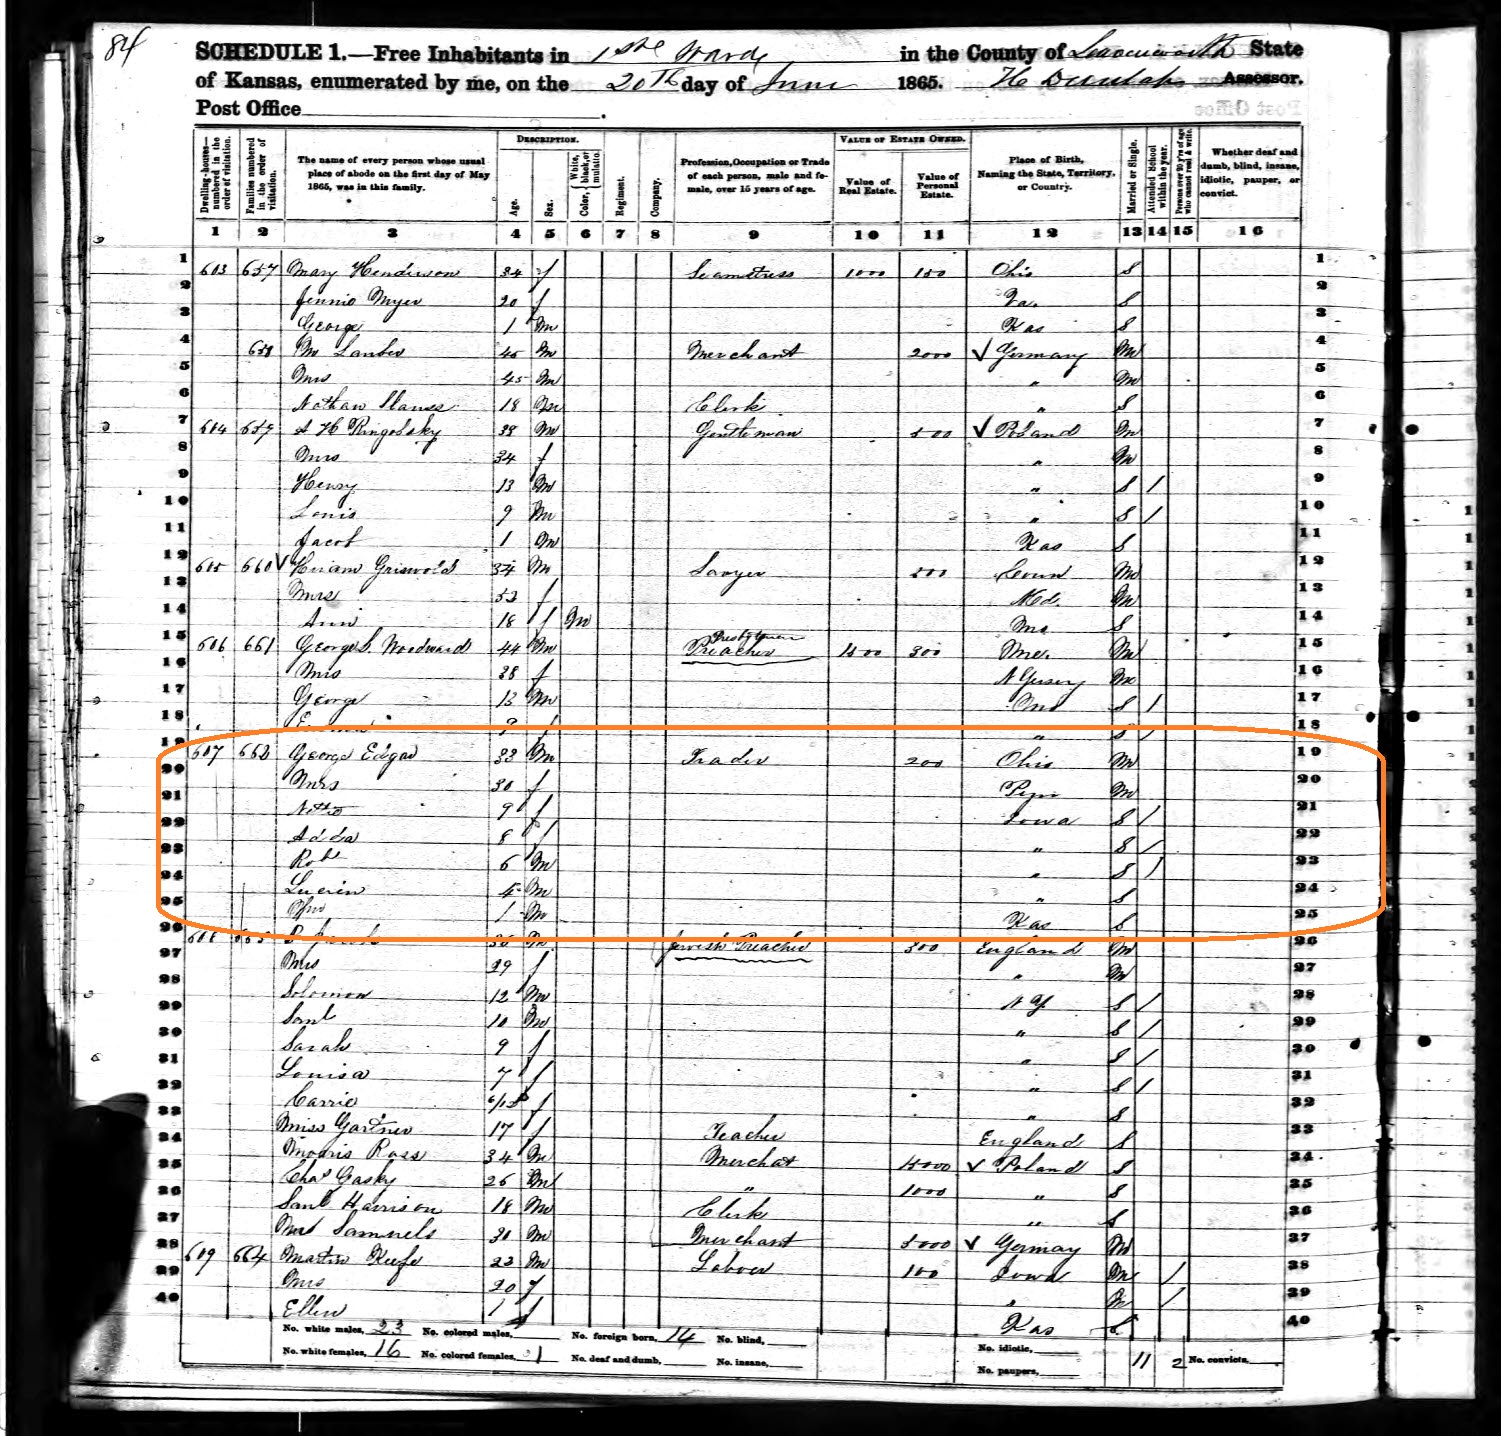 84
SCHEDULE 1.—Free Inhabitants in 1ste Ward in the County of Leavenworth State
of Kansas, enumerated by me, on the 20th day of June 1865. H Dunlap Assessor.
Post Office
DESCRIPTION. VALUE OF ESTATE OWNED.
Dwelling-houses—numbered in the order of visitation. Families numbered in the order of visitation. The name of every person whose usual place of abode on the first day of May 1865, was in this family. Age. Sex. Color, White, black, or mulatto. Regiment. Company. Profession, Occupation or Trade of each person, male and female, over 15 years of age. Value of Real Estate. Value of Personal Estate. Place of Birth, Naming the State, Territory, or Country. Married or Single. Attended School within the year. Persons over 20 y'rs of age who cannot read & write. Whether deaf and dumb, blind, insane, idiotic, pauper, or convict.
1 2 3 4 5 6 7 8 9 10 11 12 13 14 15 16
1 603 657 Mary Henderson 34 f Seamstress 1000 150 Ohio S 1
2 Jennie Myer 20 f Va. S 2
3 George 1 m Kas S 3
4 658 M 45 m Merchant 2000 Germany m 4
5 Mrs 45 m " m 5
6 Nathan 18 m Clerk " S 6
7 604 659 S H Ringolsky 38 m Gentleman 500 Poland m 7
8 Mrs 34 f " m 8
9 Henry 13 m " S / 9
10 Louis 9 m " S / 10
11 Jacob 1 m Kas S 11
12 605 660 Hiram Griswold m Lawyer 500 Conn m 12
13 Mrs 53 f Md. m 13
14 Ann 18 f m Mo S 14
15 606 661 George S. Woodward 44 m Presbyterian Preacher 1500 300 Me. m 15
16 Mrs 38 f N Jersey m 16
17 George 13 m Mo S / 17
18 9 f " S / 18
19 607 662 George Edgar 33 m Trader 200 Ohio m 19
20 Mrs 30 f Penn m 20
21 Netta 9 f Iowa S / 21
22 Adda 8 f " S / 22
23 Rob 6 m " S / 23
24 Lucien 4 m " S 24
25 1 m Kas S 25
26 608 663 35 m Jewish Preacher 300 England m 26
27 Mrs 29 f " m 27
28 Solomon 12 m N Y S / 28
29 Saml 10 m " S / 29
30 Sarah 9 f " S / 30
31 Louisa 7 f " S / 31
32 Carrie 6/12 f " S 32
33 Miss Gartner 17 f Teacher England S 33
34 Morris Ross 34 m Merchat 15000 Poland S 34
35 Chas Gasky 26 m " 1000 " S 35
36 Saml Harrison 18 m Clerk " S 36
37 Samuels 30 m Merchant 5000 Germany m 37
38 609 664 Martin Keefe 23 m Labour 100 Iowa m / 38
39 Mrs 20 f " m / 39
40 Ellen 1 f Kas S 40
No. white males, 23 No. colored males, No. foreign born, 14 No. blind, No. idiotic,
No. white females, 16 No. colored females, 1 No. deaf and dumb, No. insane, No. paupers, 11 2 No. convicts,